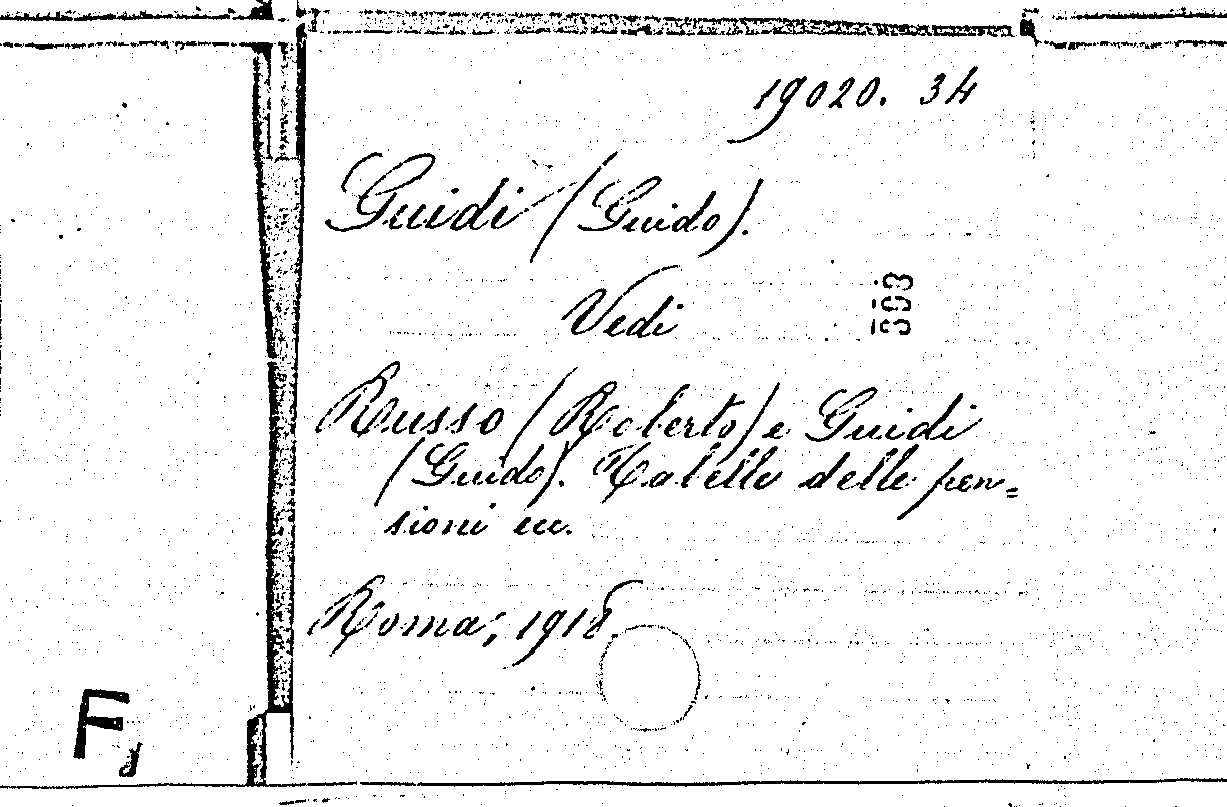 19020. 34
Guidi (Guido).
Vedi
393
Russo (Roberto) e Guidi
(Guido). Tabelle delle pen=
sioni ecc.
Roma, 1918.
F